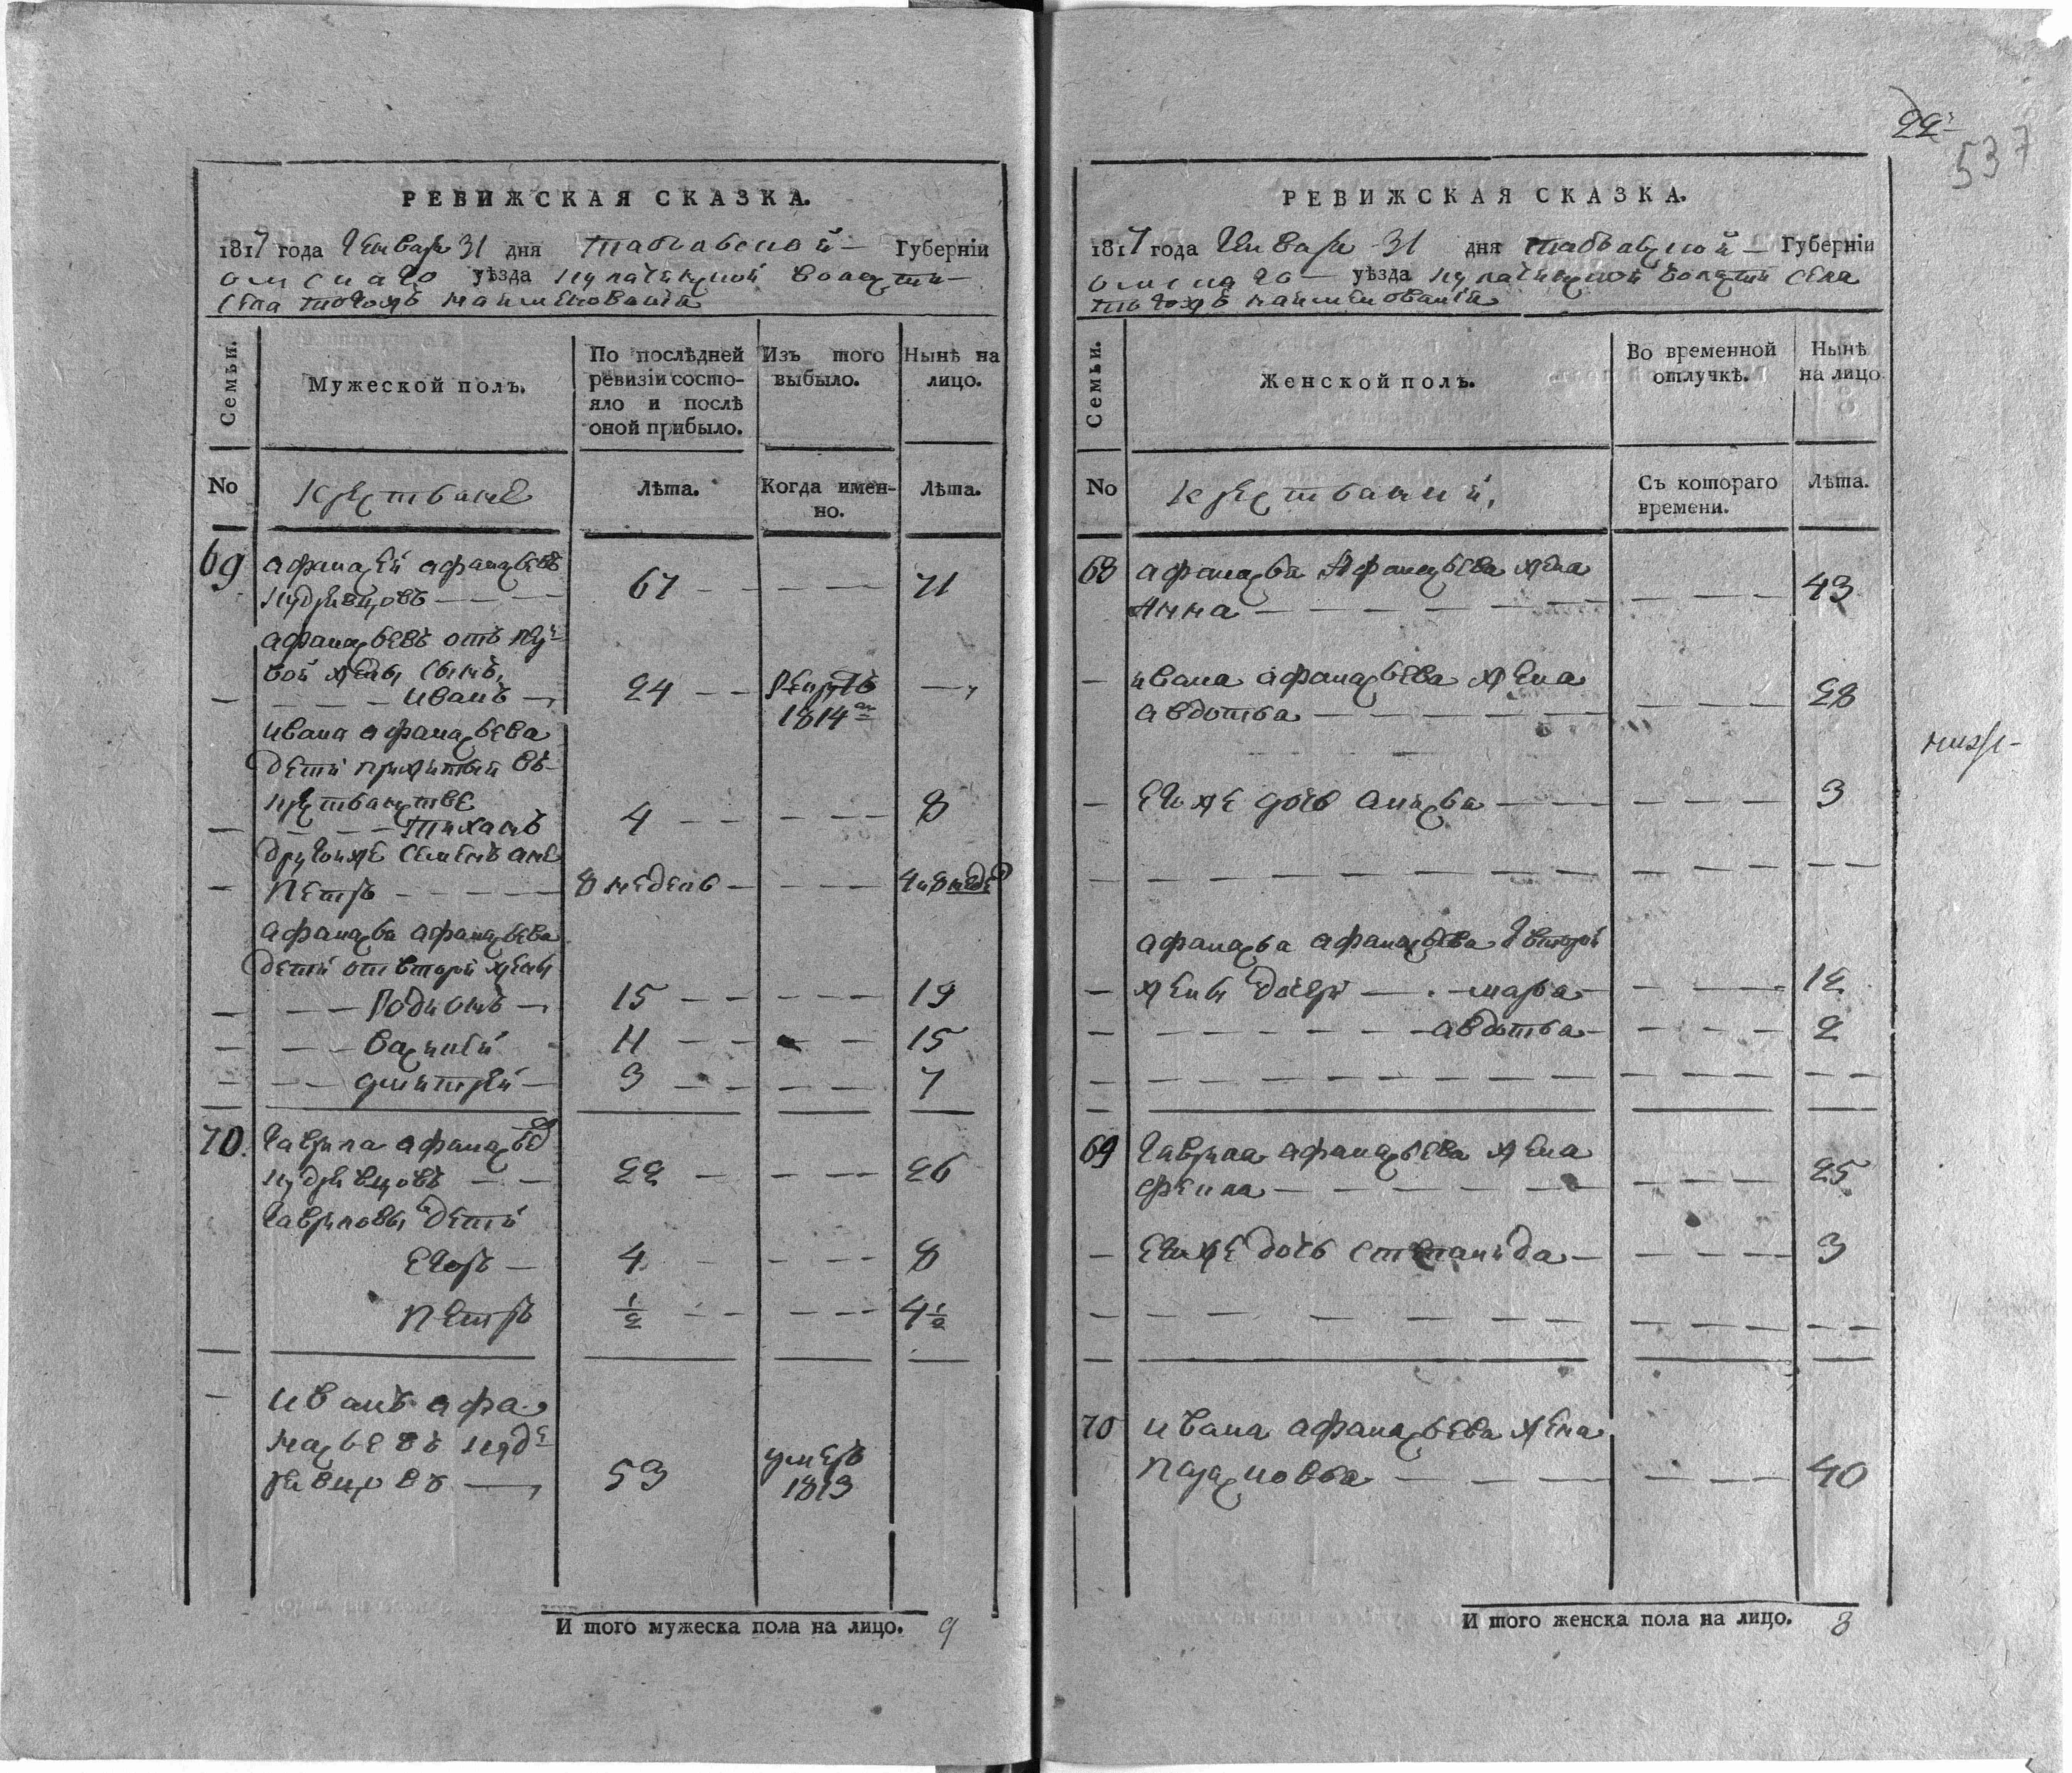 РЕВИЖСКАЯ СКАЗКА.
1817 года Генваря 31 дня Тобольской Губерніи
омскаго уѣзда кулачинской волости
села тогожъ наименованія
Семьи.
Мужеской полъ.
По послѣдней ревизіи состо-
яло и послѣ
оной прибыло.
Изъ того
выбыло.
Нынѣ на
лицо.
No
крестьяне
Лѣта.
Когда имен-
но.
Лѣта.
69 афанасей афанасьевъ
кудрявцовъ 67 71
афанасьевъ отъ пер
вой жены сынъ
иванъ 24 рекрутъ
1814
ивана афанасьева
дети прижитыи въ
крестьянстве
тиханъ 4 8
другойже семенъ
петръ 8 недель 4 и 8 неде
афанасья афанасьева
дети от второй жены
Родионъ 15 19
василей 11 15
дмитрей 3 7
70. гаврила афанасье
кудрявцовъ 22 26
гавриловы дети
егоръ 4 8
петръ 1/2 4 1/2
иванъ афа
насьевъ куд
рявцовъ 53 умеръ
1813
И того мужеска пола на лицо. 9
22
537
РЕВИЖСКАЯ СКАЗКА.
1817 года Генваря 31 дня тобольской Губерніи
омскаго уѣзда кулачинской волости села
тогожъ наименованія
Семьи.
Женской полъ.
Во временной
отлучкѣ.
Нынѣ
на лицо
No
крестьянки
Съ котораго
времени.
Лѣта.
68 афанасья Афанасьева жена
Анна 43
ивана афанасьева жена
авдотья 28
егоже дочь анисья 3
афанасья афанасьева второй
жены дочери марья 12
авдотья 2
69 гаврила афанасьева жена
фекла 25
егоже дочь степанида 3
70 ивана афанасьева жена
парасковья 40
И того женска пола на лицо. 8